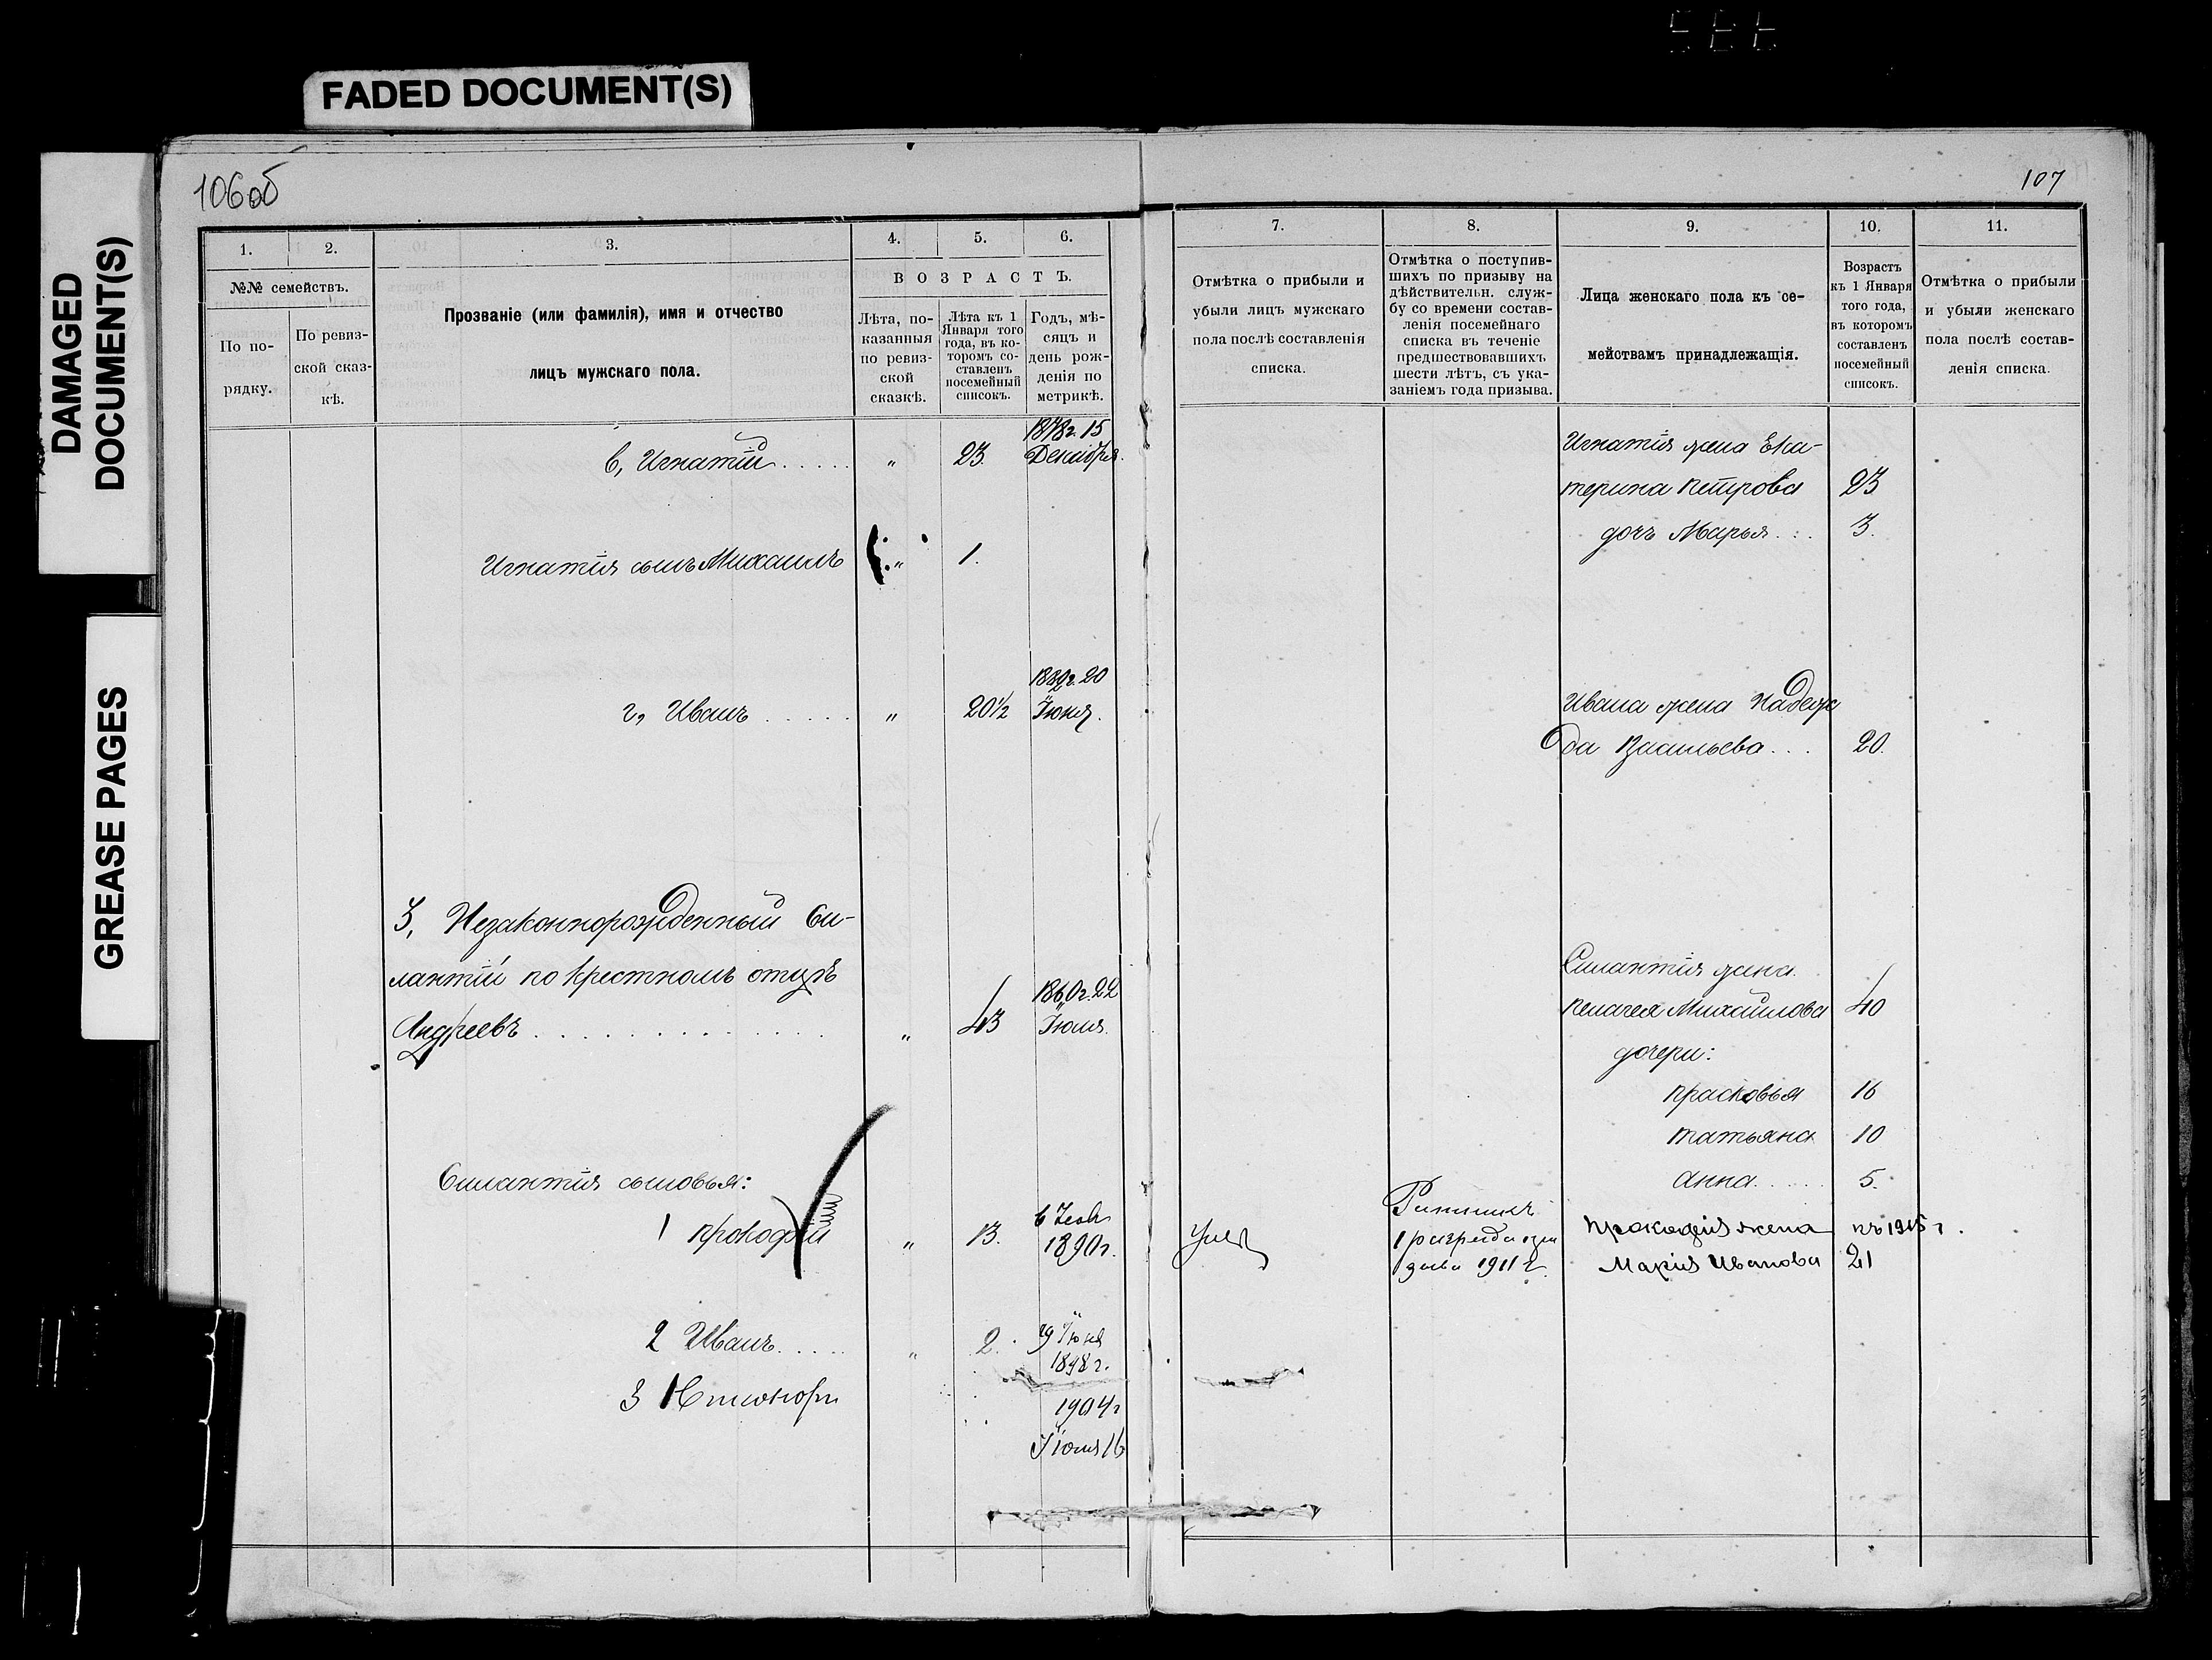 FADED DOCUMENT(S)
DAMAGED
DOCUMENT(S)
GREASE PAGES
106об
1.
2.
3.
4.
5.
6.
№№ семействъ.
По по-
рядку.
По ревиз-
ской сказ-
кѣ.
Прозваніе (или фамилія), имя и отчество
лицъ мужскаго пола.
ВОЗРАСТЪ.
Лѣта, по-
казанныя
по ревиз-
ской
сказкѣ.
Лѣта къ 1
Января того
года, въ ко-
торомъ со-
ставленъ
посемейный
списокъ.
Годъ, мѣ-
сяцъ и
день рож-
денія по
метрикѣ.
в, Игнатій . . . . . " 23. 1878 г. 15
Декабря.
Игнатія сынъ Михаилъ " 1.
г, Иванъ . . . . . " 20½ 20
Іюня.
3, Незаконнорожденный Си-
лантій по крестномъ отцѣ
Андреевъ . . . . . . . . . . . " 43 1860 г. 22
Іюля.
Силантія сыновья:
1 Прокофій " 13. 6
1890 г.
2 Иванъ . . . . . " 2. 29 Іюня
1898 г.
3 1904 г
Іюля 16
107
7.
8.
9.
10.
11.
Отмѣтка о прибыли и
убыли лицъ мужскаго
пола послѣ составленія
списка.
Отмѣтка о поступив-
шихъ по призыву на
дѣйствительн. служ-
бу со времени состав-
ленія посемейнаго
списка въ теченіе
предшествовавшихъ
шести лѣтъ, съ ука-
заніемъ года призыва.
Лица женскаго пола къ се-
мействамъ принадлежащія.
Возрастъ
къ 1 Января
того года,
въ которомъ
составленъ
посемейный
списокъ.
Отмѣтка о прибыли
и убыли женскаго
пола послѣ состав-
ленія списка.
Игнатія жена Ека-
терина Петрова 23
дочь Марья . . . 3.
Ивана жена Надеж
да Васильева . . . 20.
Силантія жена
Пелагея Михайлова 40
дочери:
Прасковья 16
Татьяна 10
Анна . . . . . 5.
Ратникъ
1 разряда
1911 г.
Прокофія жена къ 1915 г.
Марія Иванова 21